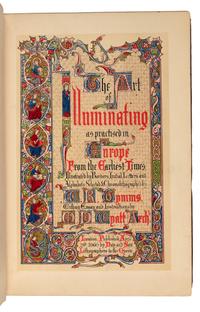 The Art
of
Illuminating
as practised in
Europe
From the Earliest Times
Illustrated by Borders, Initial Letters and
Alphabets Selected & Chromolithographed by
W. R. Tymms.
With an Essay and Instructions by
M. D. Wyatt, Arch.
London Published
by Day and Son
Lithographers to the Queen